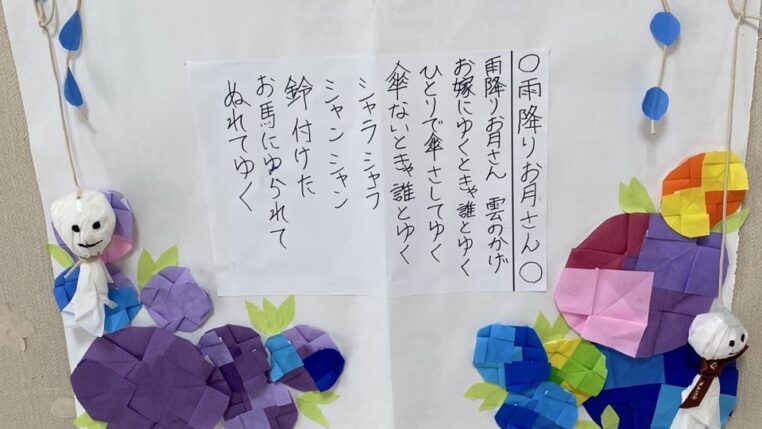 ○雨降りお月さん○
雨降りお月さん 雲のかげ
お嫁にゆくときゃ誰とゆく
ひとりで傘さしてゆく
傘ないときゃ誰とゆく
シャラシャラ
シャンシャン
鈴付けた
お馬にゆられて
ぬれてゆく